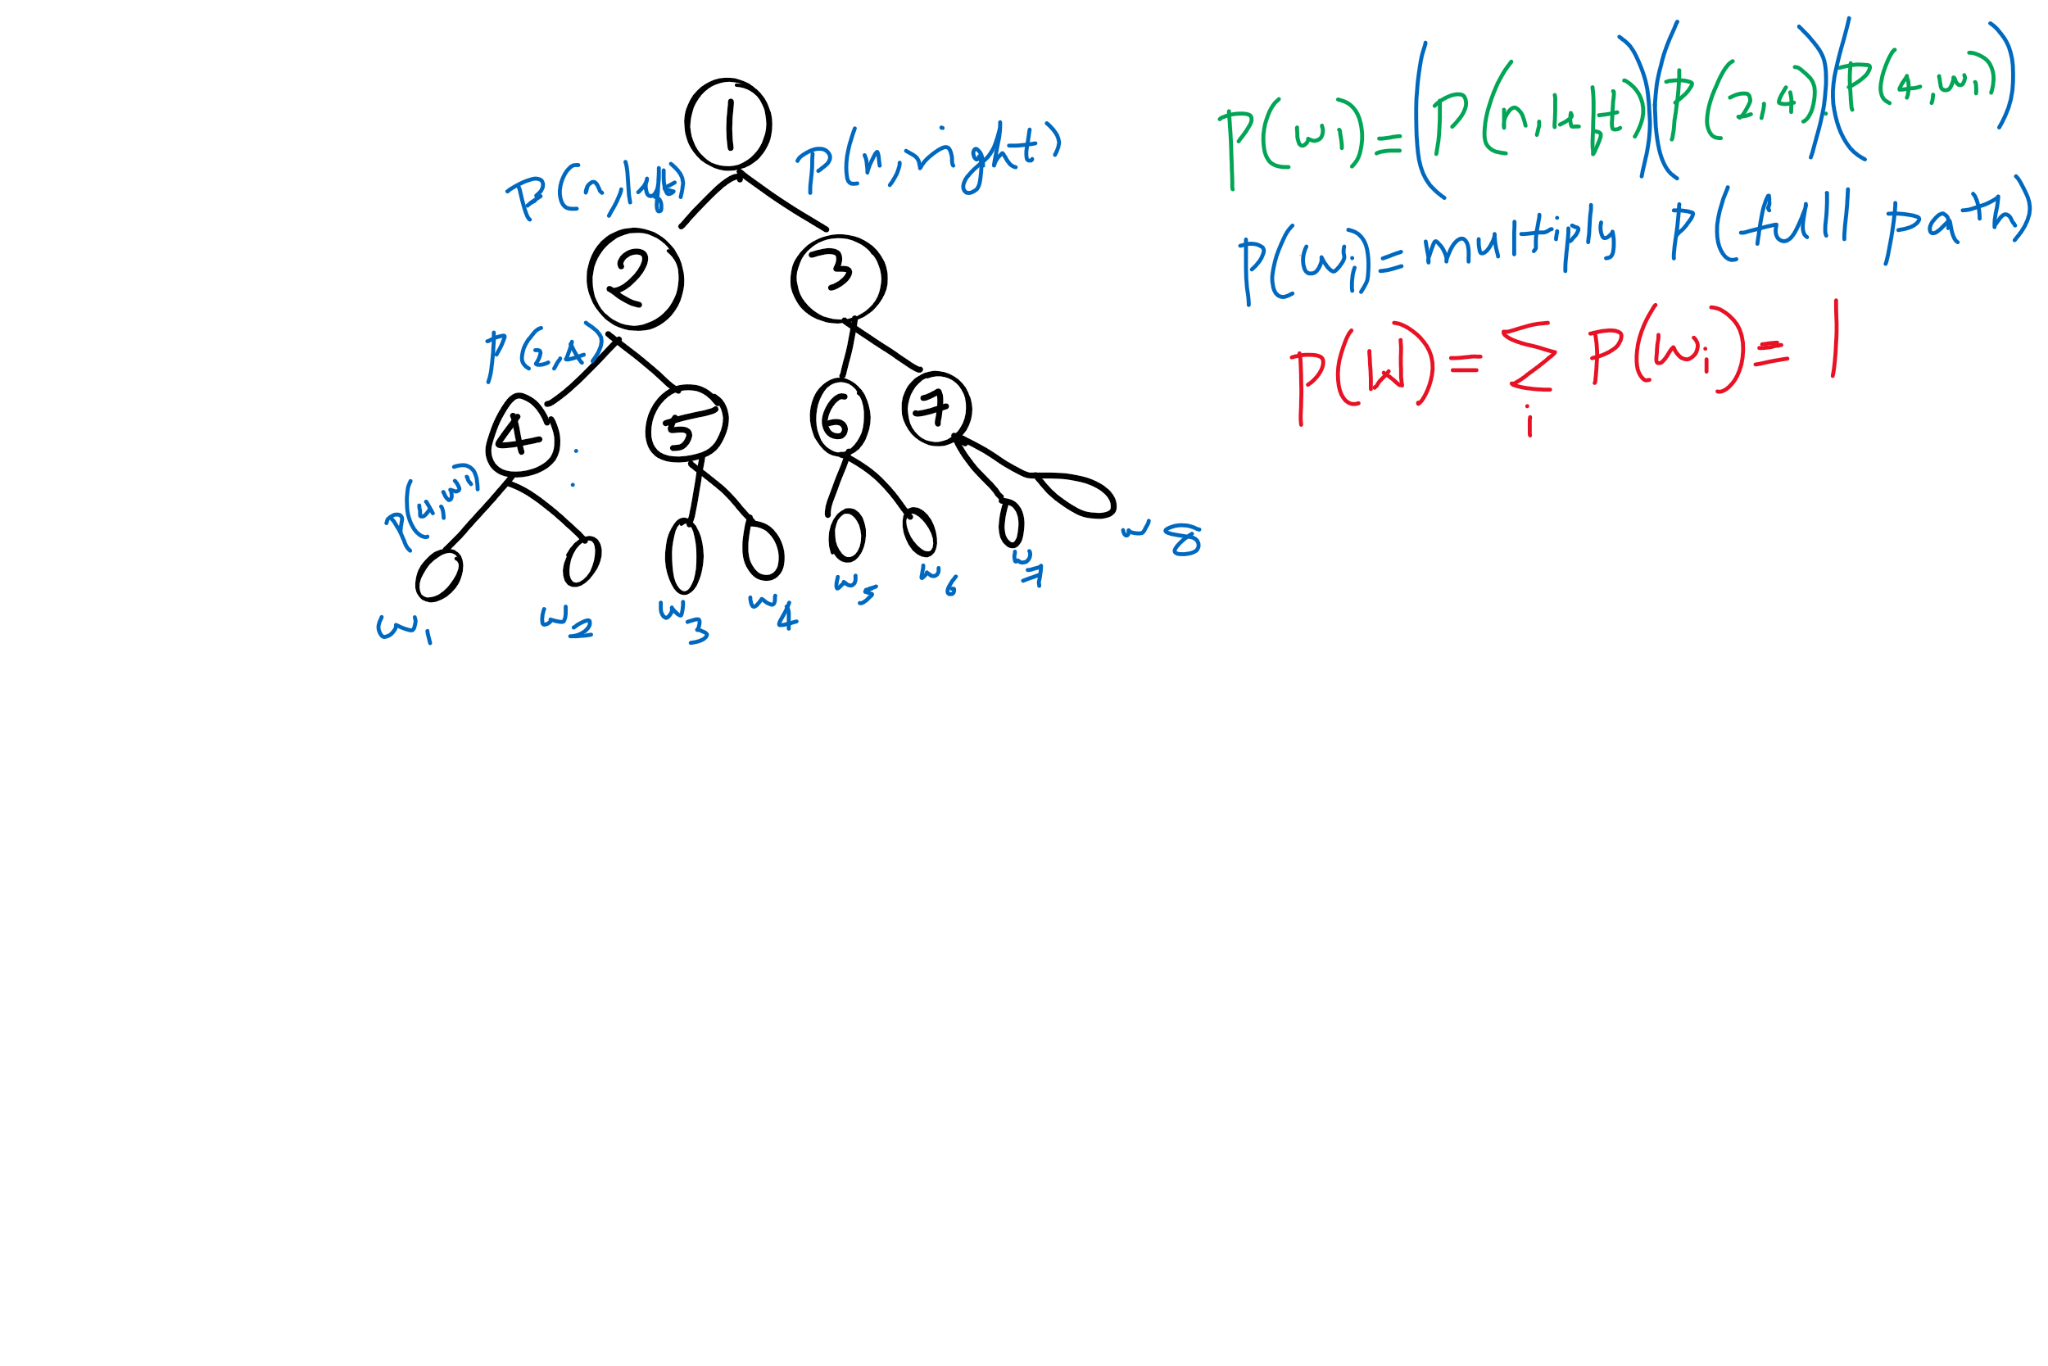 1
P(n,left) P(n,right)
2 3
P(2,4)
4 5 6 7
P(4,w1)
w1 w2 w3 w4 w5 w6 w7 w8
P(w1) = (P(n,left))(P(2,4))(P(4,w1))
P(wi) = multiply P(full path)
P(W) = ∑i P(wi) = 1